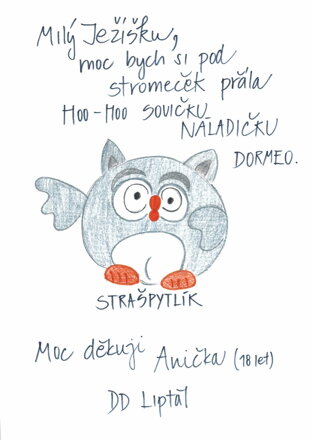 Milý Ježíšku,
moc bych si pod
stromeček přála
Hoo-Hoo sovičku
NÁLADIČKU
DORMEO.
STRAŠPYTLÍK
Moc děkuji Anička (18 let)
DD Liptál